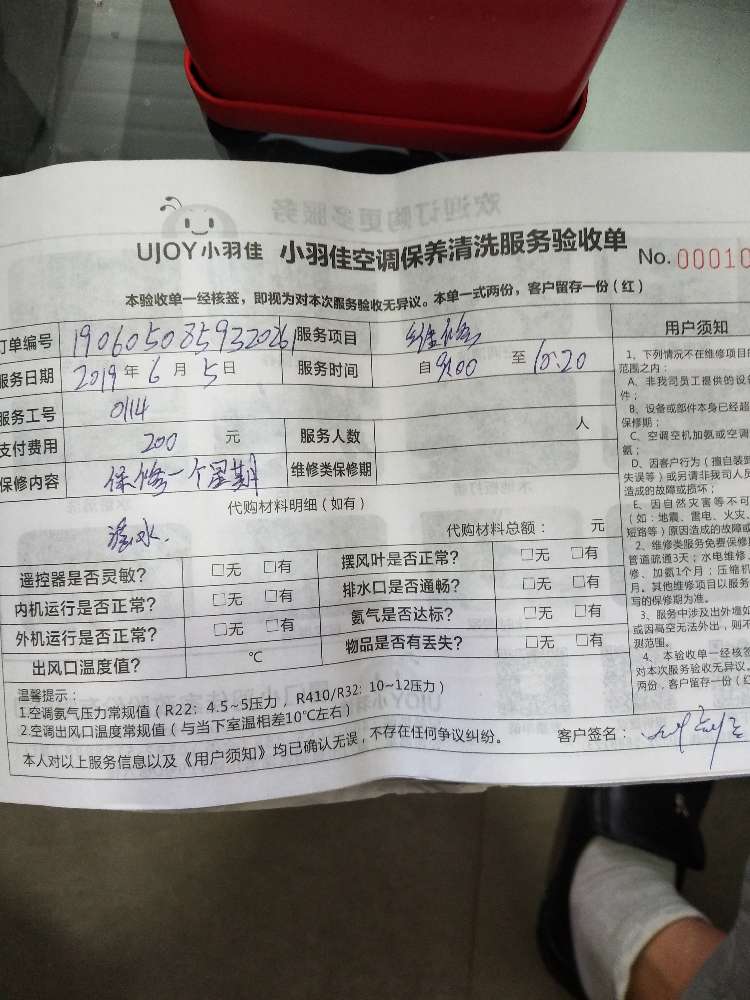 欢迎订购更多服务
UJOY小羽佳 小羽佳空调保养清洗服务验收单 No. 00010
本验收单一经核签，即视为对本次服务验收无异议。本单一式两份，客户留存一份（红）
订单编号 190605085932026 服务项目 维修
服务日期 2019年6月5日 服务时间 自 9:00 至 10:20
服务工号 0114
支付费用 200 元 服务人数 人
保修内容 保修一个星期 维修类保修期
代购材料明细（如有）
代购材料总额： 元
漏水.
遥控器是否灵敏? □无 □有 摆风叶是否正常? □无 □有
内机运行是否正常? □无 □有 排水口是否通畅? □无 □有
外机运行是否正常? □无 □有 氨气是否达标? □无 □有
出风口温度值? ℃ 物品是否有丢失? □无 □有
温馨提示：
1.空调氨气压力常规值（R22: 4.5~5压力，R410/R32: 10~12压力）
2.空调出风口温度常规值（与当下室温相差10℃左右）
本人对以上服务信息以及《用户须知》均已确认无误，不存在任何争议纠纷。 客户签名：
用户须知
1、下列情况不在维修项目
范围之内：
A、非我司员工提供的设
件；
B、设备或部件本身已经超
保修期；
C、空调空机加氨或空调
氨；
D、因客户行为（擅自装
失误等）或另请非我司人员
造成的故障或损坏；
E、因自然灾害等不可
（如：地震、雷电、火灾、
短路等）原因造成的故障或
2、维修类服务免费保修
管道疏通3天；水电维修、
修、加氨1个月；压缩机
月。其他维修项目以服务
写的保修期为准。
3、服务中涉及出外墙如
或因高空无法外出，则不
测范围。
4、本验收单一经核签
对本次服务验收无异议。
两份，客户留存一份（红